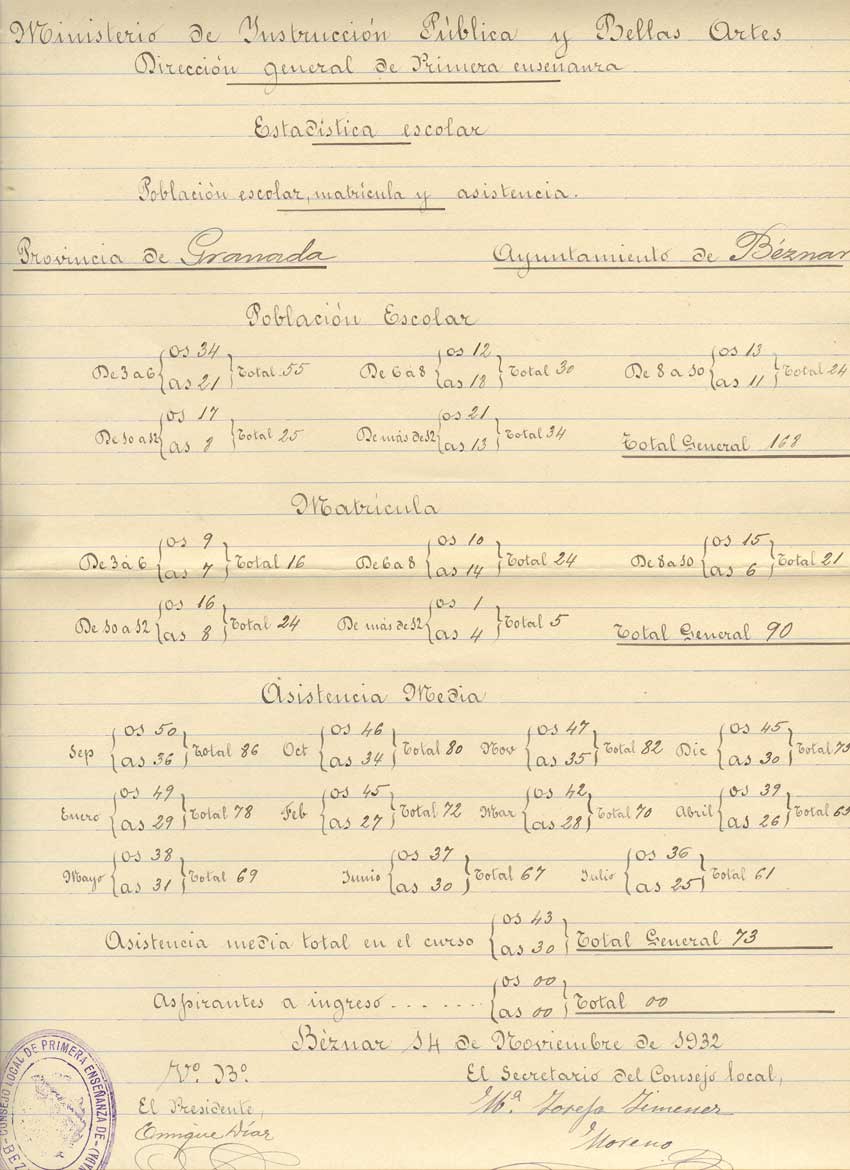 Ministerio de Instrucción Pública y Bellas Artes
Dirección general de Primera enseñanza
Estadística escolar
Población escolar, matrícula y asistencia.
Provincia de Granada Ayuntamiento de Béznar
Población Escolar
De 3 a 6 { os 34 as 21 } Total 55 De 6 á 8 { os 12 as 18 } Total 30 De 8 a 10 { os 13 as 11 } Total 24
De 10 a 12 { os 17 as 8 } Total 25 De más de 12 { os 21 as 13 } Total 34 Total General 168
Matrícula
De 3 á 6 { os 9 as 7 } Total 16 De 6 a 8 { os 10 as 14 } Total 24 De 8 a 10 { os 15 as 6 } Total 21
De 10 a 12 { os 16 as 8 } Total 24 De más de 12 { os 1 as 4 } Total 5 Total General 90
Asistencia Media
Sep { os 50 as 36 } Total 86 Oct { os 46 as 34 } Total 80 Nov { os 47 as 35 } Total 82 Dic { os 45 as 30 } Total 75
Enero { os 49 as 29 } Total 78 Feb { os 45 as 27 } Total 72 Mar { os 42 as 28 } Total 70 Abril { os 39 as 26 } Total 65
Mayo { os 38 as 31 } Total 69 Junio { os 37 as 30 } Total 67 Julio { os 36 as 25 } Total 61
Asistencia media total en el curso { os 43 as 30 } Total General 73
Aspirantes a ingreso . . . . . . . . { os 00 as 00 } Total 00
Béznar 14 de Noviembre de 1932
Vº. Bº. El Secretario del Consejo local,
El Presidente, Mª. Josefa Jimener
Enrique Díaz Moreno
CONSEJO LOCAL DE PRIMERA ENSEÑANZA DE